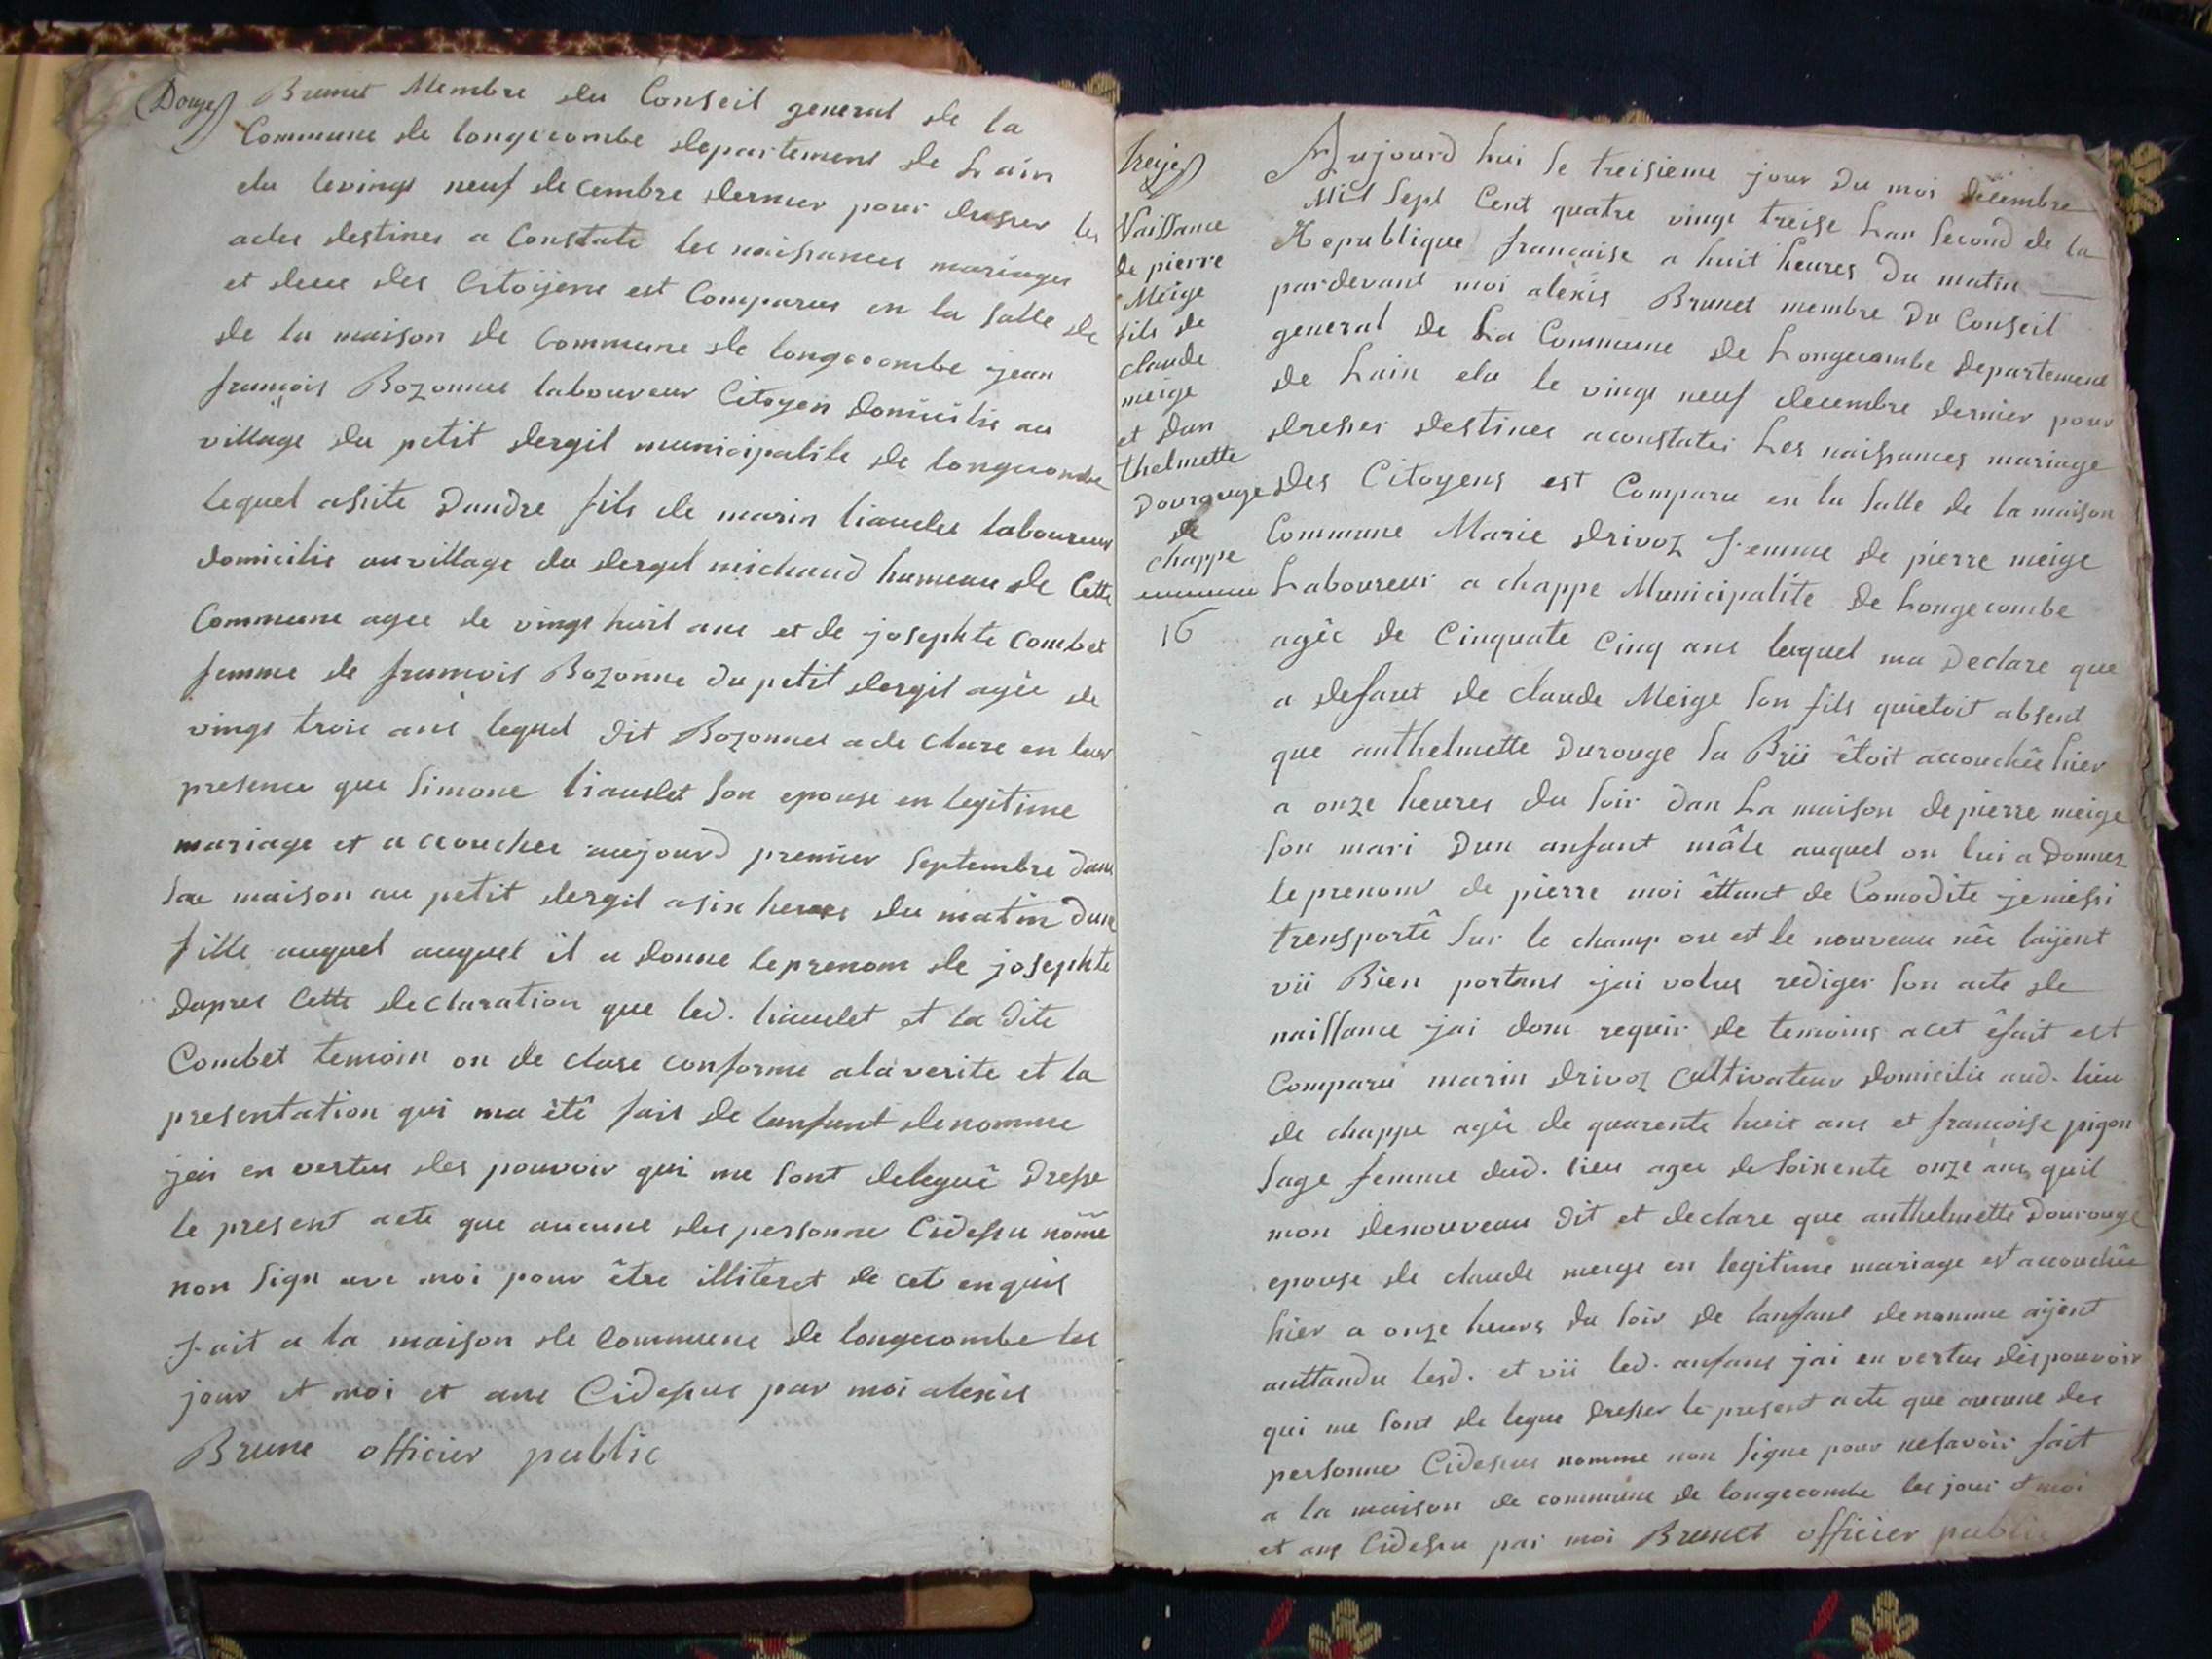 Douze
Brunet Membre du Conseil general de la
Commune de longecombe departement de Lain
elu levingt neuf decembre dernier pour dresser les
actes destines a Constate les naissances mariages
et deces des Citoyens est Comparus en la salle de
de la maison de Commune de longecombe jean
françois Bozonnet laboureur Citoyen domicilie au
village du petit dergil municipalite de longecombe
lequel assite Dandre fils de marin liaudet laboureur
domicilie auvillage du dergil michaud hameau de Cette
Commune agee de vingt huit ans et de josephte Combet
femme de francois Bozonne du petit dergil agée de
vingt trois ans lequel dit Bozonnet a de clare en leur
presence que Simone liaudet son epouse en legitime
mariage et accouchee aujourd premier Septembre dans
sa maison au petit dergil asix heures du matin dune
fille auquel auquel il a donne leprenom de josephte
dapres Cette declaration que led. liaudet et la dite
Combet temoin on de clare conforme ala verite et la
presentation qui ma été fait de lenfant denomme
jai en vertus des pouvoir qui me sont delegué dresse
le present acte que aucune des personne Cidessu nomme
non Sign ave moi pour être illiteret de cet enquis
fait a la maison de Commune de longecombe les
jour et moi et ans Cidessus par moi alexis
Brune officier public
treize
Naissance
de pierre
Meige
fils de
claude
meige
et dan
thelmette
Dourouge
de
chappe
16
Aujourd hui le treisieme jour du moi decembre
Mil Sept Cent quatre vingt treise Lan Second de la
Republique francaise a huit heures du matin
pardevant moi alexis Brunet membre du Conseil
general de La Commune de Longecombe departement
de Lain elu le vingt neuf decembre dernier pour
dresser destines aconstater Les naissances mariage
des Citoyens est Comparu en la Salle de la maison
Commune Marie drivoz Femme de pierre meige
Laboureur a chappe Municipalité de Longecombe
agée de Cinquate Cinq ans lequel ma declare que
a defaut de claude Meige son fils quietoit absent
que anthelmette Durouge sa Brii étoit accouchée hier
a onze heures du soir dan La maison depierre meige
son mari dun anfant mâle auquel on lui a Donnez
le prenom de pierre moi êttant de Comodite jemessi
trensporté Sur le champ ou est le nouveau née layent
vii Bien portans jai volus rediger son acte de
naissance jai donc requir de temoins acet éfait est
Comparu marin drivoz Cultivateur domicilie aud. lieu
de chappe agée de quarente huit ans et francoise pigon
sage femme dud. lieu agee de soixente onze ans quil
mon denouveau dit et declare que anthelmette Dourouge
epouse de claude meige en legitime mariage est accouchée
hier a onze heurs du soir de lanfant denomme aijent
anttandu lesd. et vii led. anfans jai en vertus des pouvoir
qui me sont de legue dresser le present acte que aucune des
personnes Cidessus nomme non signe pour nesavoir fait
a la maison de commune de longecombe les jour et moi
et ans Cidessu par moi Brunet officier public